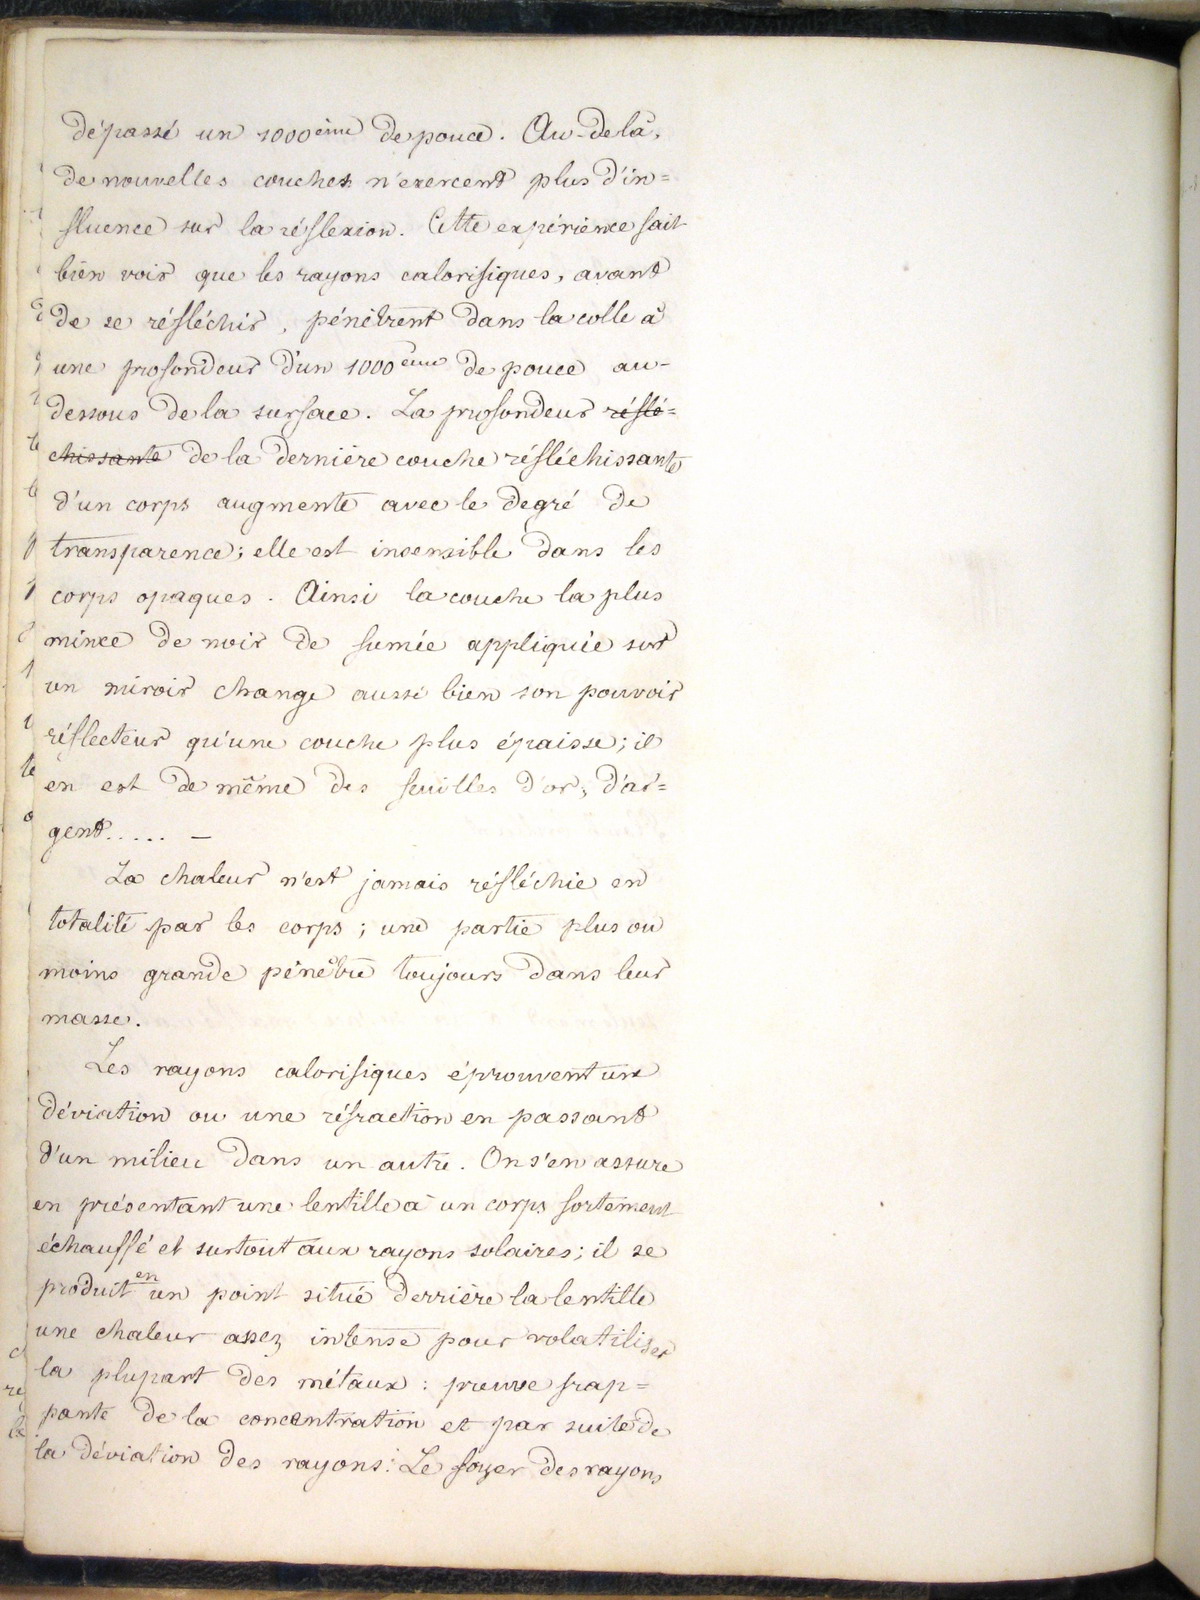 dépassé un 1000ème de pouce. Au-delà,
de nouvelles couches n'exercent plus d'in=
fluence sur la réflexion. Cette expérience fait
bien voir que les rayons calorifiques, avant
de se réfléchir, pénètrent dans la colle à
une profondeur d'un 1000ème de pouce au-
dessous de la surface. La profondeur réflé=
chissante de la dernière couche réfléchissante
d'un corps augmente avec le degré de
transparence; elle est insensible dans les
corps opaques. Ainsi la couche la plus
mince de noir de fumée appliquée sur
un miroir change aussi bien son pouvoir
réflecteur qu'une couche plus épaisse; il
en est de même des feuilles d'or, d'ar=
gent..... —
La chaleur n'est jamais réfléchie en
totalité par les corps; une partie plus ou
moins grande pénètre toujours dans leur
masse.
Les rayons calorifiques éprouvent une
déviation ou une réfraction en passant
d'un milieu dans un autre. On s'en assure
en présentant une lentille à un corps fortement
échauffé et surtout aux rayons solaires; il se
produit en un point situé derrière la lentille
une chaleur assez intense pour volatiliser
la plupart des métaux: preuve frap=
pante de la concentration et par suite de
la déviation des rayons. Le foyer des rayons